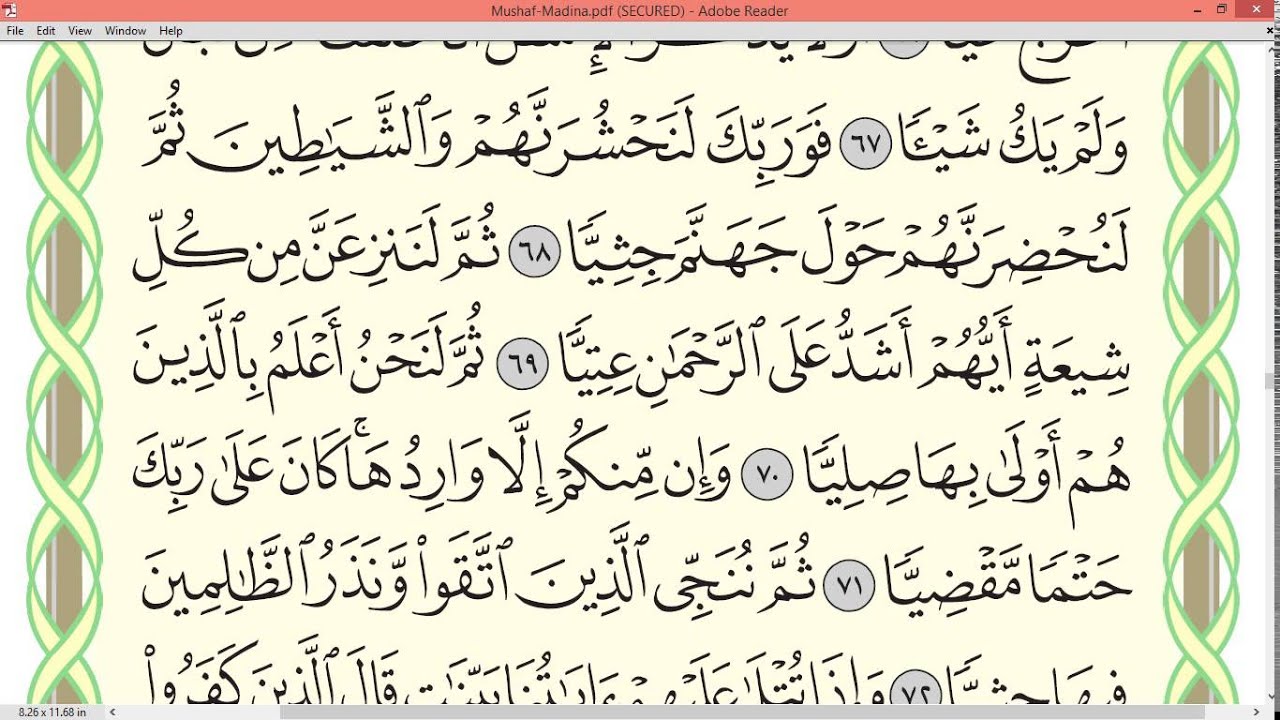 Mushaf-Madina.pdf (SECURED) - Adobe Reader
File Edit View Window Help
وَلَمۡ يَكُ شَيۡـٔٗا ٦٧ فَوَرَبِّكَ لَنَحۡشُرَنَّهُمۡ وَٱلشَّيَٰطِينَ ثُمَّ
لَنُحۡضِرَنَّهُمۡ حَوۡلَ جَهَنَّمَ جِثِيّٗا ٦٨ ثُمَّ لَنَنزِعَنَّ مِن كُلِّ
شِيعَةٍ أَيُّهُمۡ أَشَدُّ عَلَى ٱلرَّحۡمَٰنِ عِتِيّٗا ٦٩ ثُمَّ لَنَحۡنُ أَعۡلَمُ بِٱلَّذِينَ
هُمۡ أَوۡلَىٰ بِهَا صِلِيّٗا ٧٠ وَإِن مِّنكُمۡ إِلَّا وَارِدُهَاۚ كَانَ عَلَىٰ رَبِّكَ
حَتۡمٗا مَّقۡضِيّٗا ٧١ ثُمَّ نُنَجِّي ٱلَّذِينَ ٱتَّقَواْ وَّنَذَرُ ٱلظَّٰلِمِينَ
فِيهَا جِثِيّٗا ٧٢ وَإِذَا تُتۡلَىٰ عَلَيۡهِمۡ ءَايَٰتُنَا بَيِّنَٰتٖ قَالَ ٱلَّذِينَ كَفَرُواْ
8.26 x 11.68 in